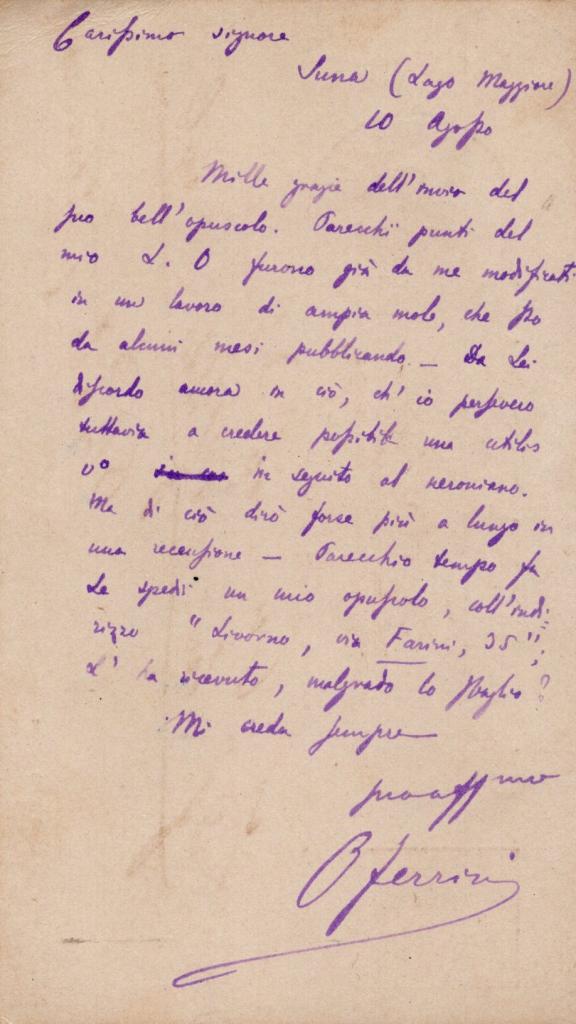 Carissimo signore
Suna (Lago Maggiore)
10 Agosto
Mille grazie dell'invio del
suo bell'opuscolo. Parecchi punti del
mio L. O furono già da me modificati
in un lavoro di ampia mole, che sto
da alcuni mesi pubblicando – Da Lei
discordo ancora in ciò, ch'io persevero
tuttavia a credere possibile una utilis
v° in seguito al neroniano.
Ma di ciò dirò forse più a lungo in
una recensione – Parecchio tempo fa
Le spedì un mio opuscolo, coll'indi-
rizzo "Livorno, via Farini, 35";
L'ha ricevuto, malgrado lo sbaglio?
Mi creda sempre
suo affmo
Ferrini